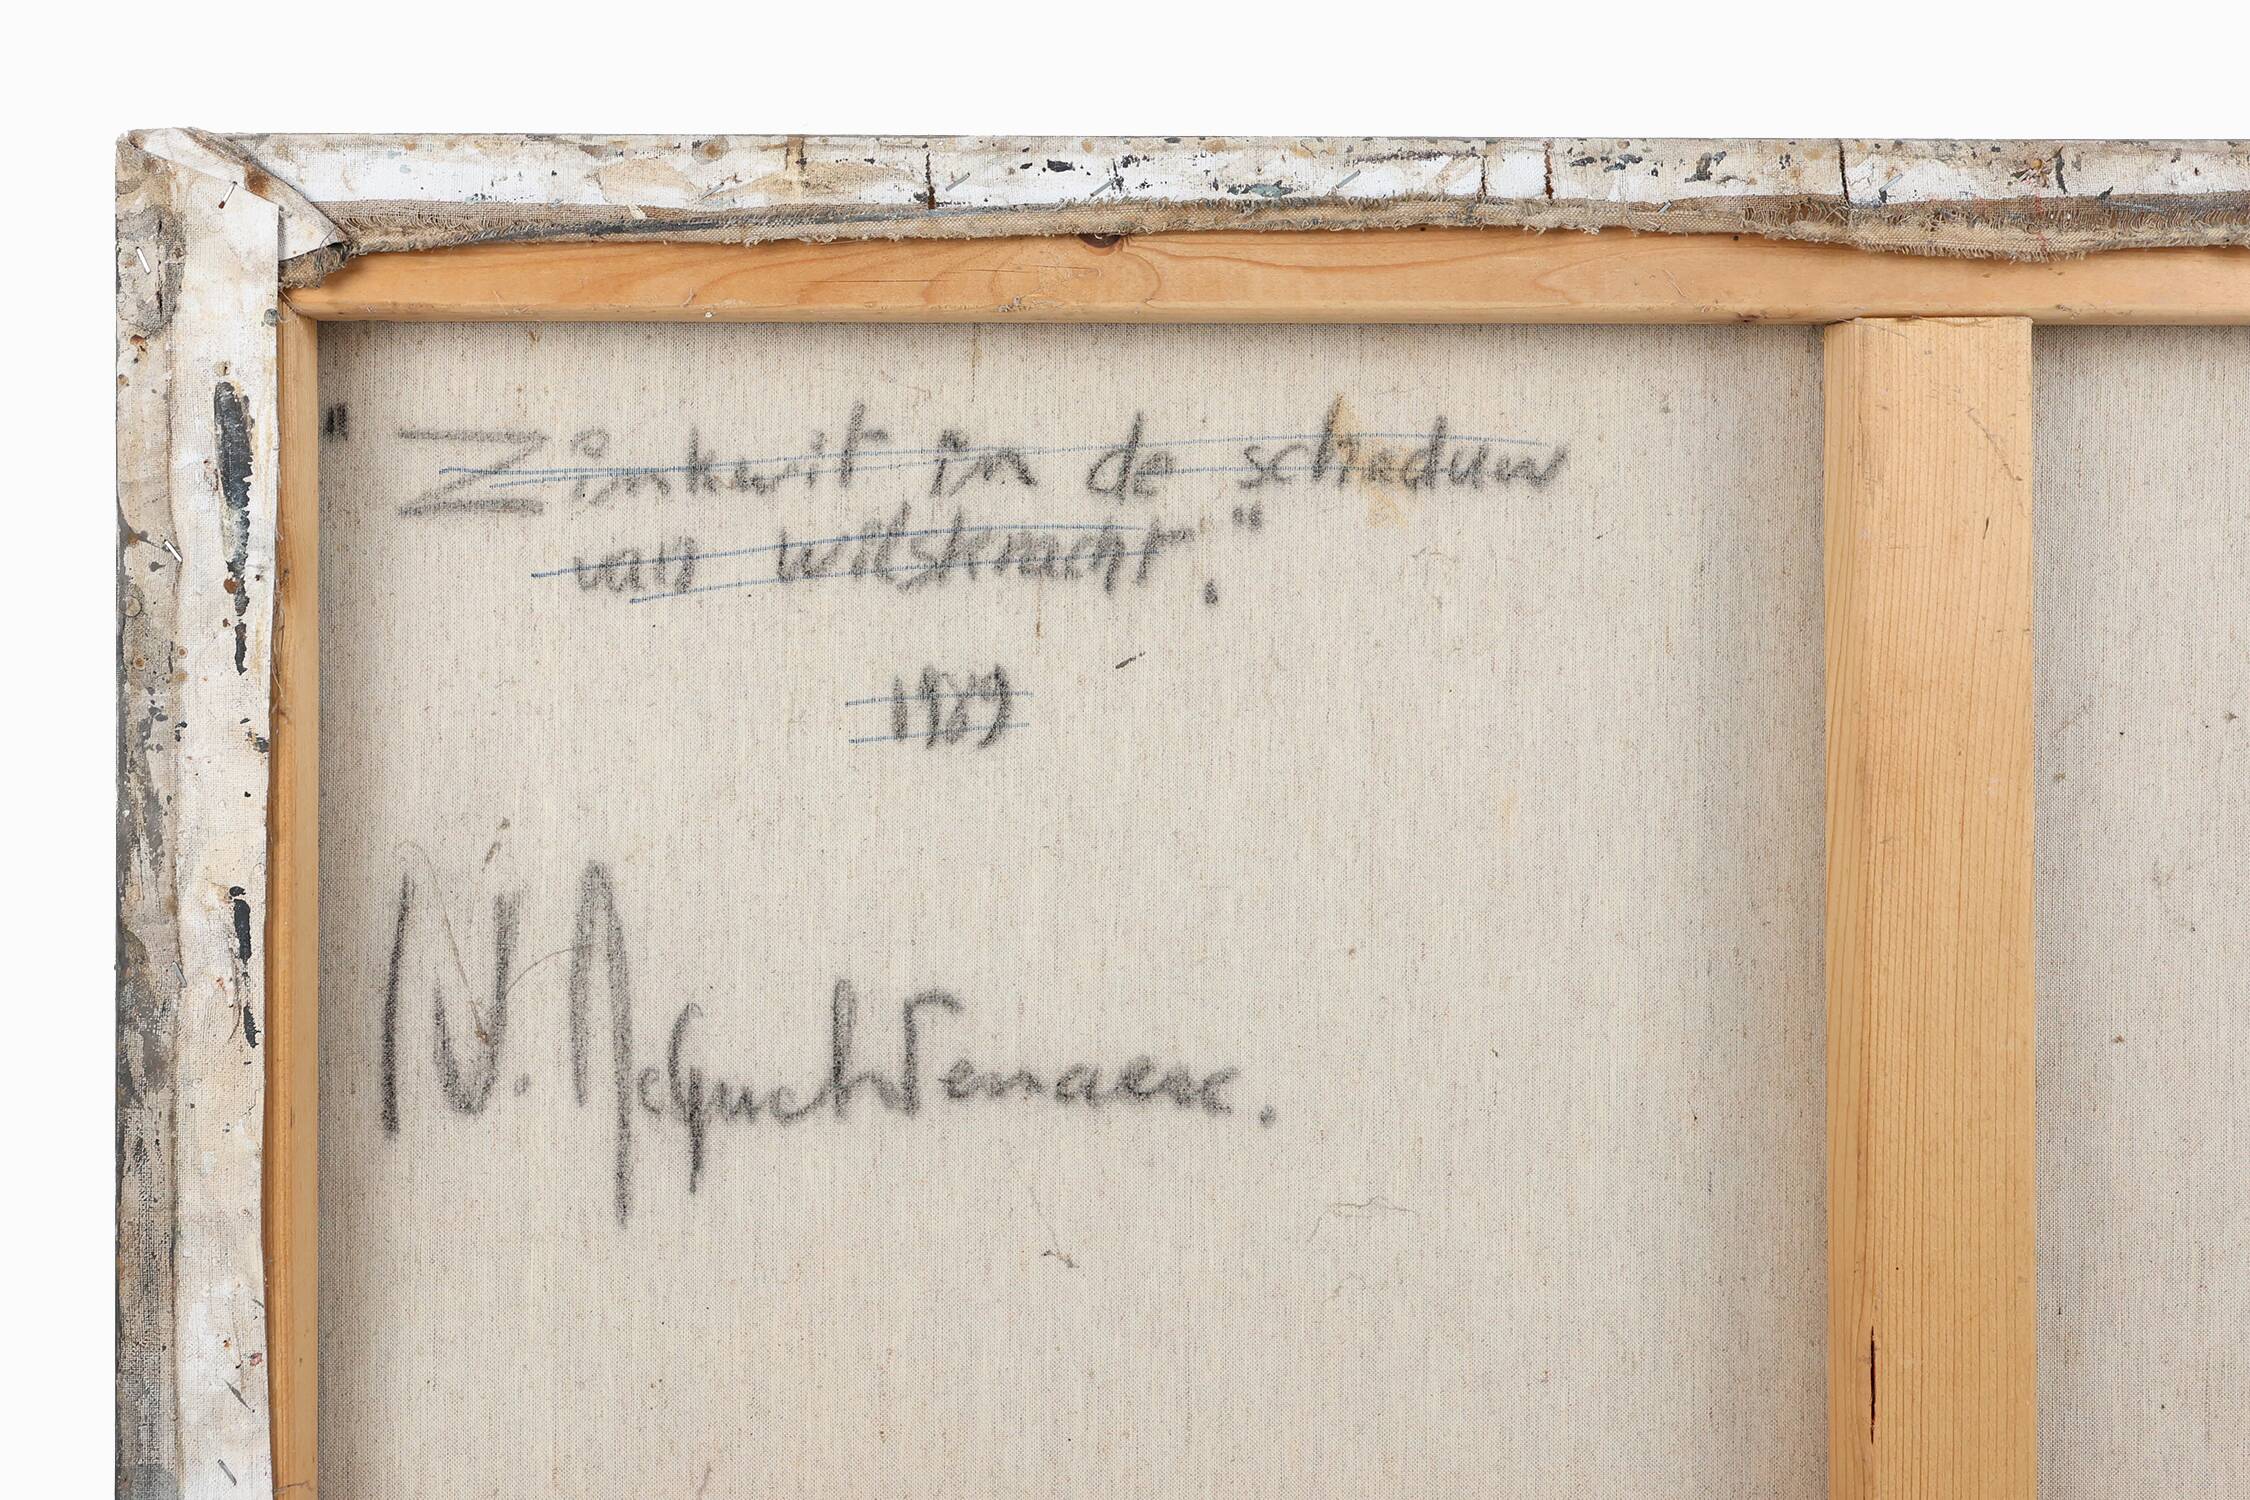 "Zinkwit in de schaduw
van wilskracht".
1989
N. Deguchtenaere.